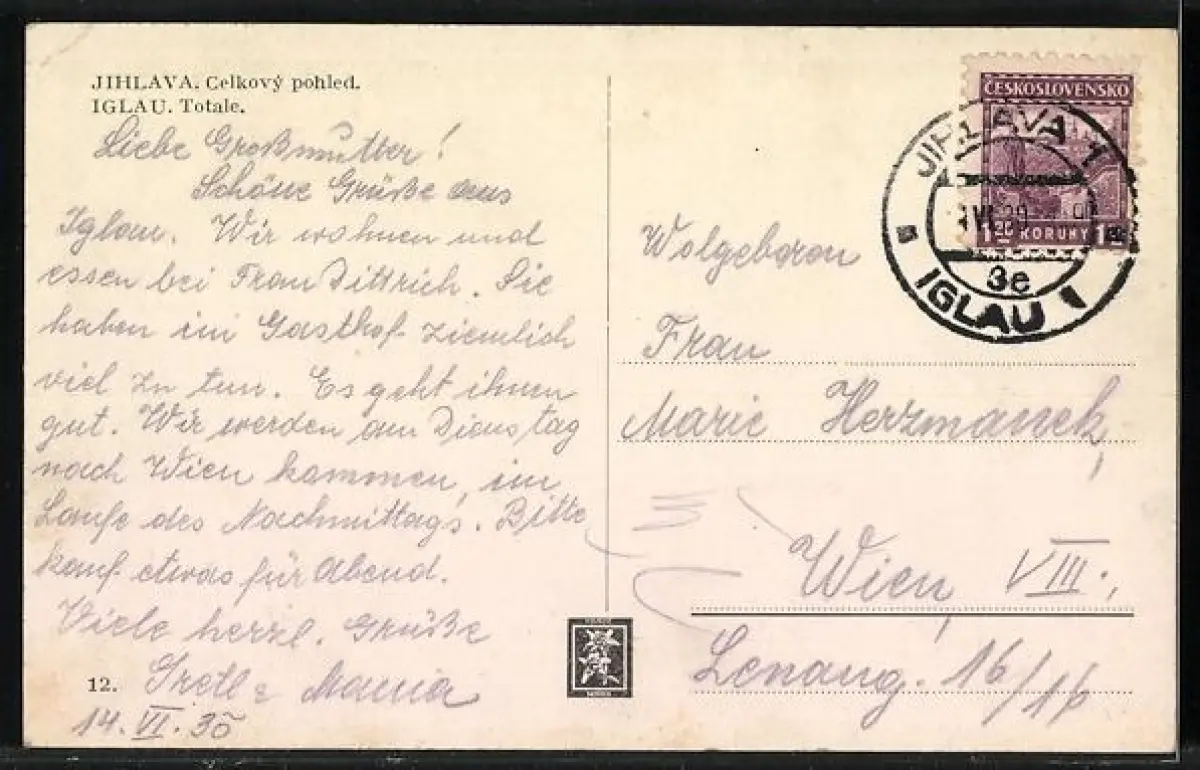 JIHLAVA. Celkový pohled.
IGLAU. Totale.
Liebe Großmutter!
Schöne Grüße aus
Iglau. Wir wohnen und
essen bei Frau Dittrich. Sie
haben im Gasthof ziemlich
viel zu tun. Es geht ihnen
gut. Wir werden am Dienstag
nach Wien kommen, im
Laufe des Nachmittags. Bitte
kauf etwas für Abend.
Viele herzl. Grüße
Gretl
12.
14. VI. 35
ČESKOSLOVENSKO
KORUNY
JIHLAVA 1
3e
IGLAU 1
Wolgeboren
Frau
Marie Herzmanek,
Wien, VIII.,
Lenaug. 16/16